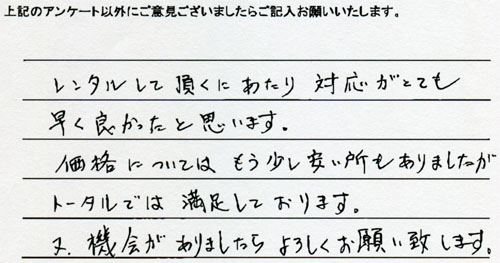 上記のアンケート以外にご意見ございましたらご記入お願いいたします。
レンタルして頂くにあたり 対応がとても
早く良かったと思います。
価格については もう少し安い所もありましたが
トータルでは 満足しております。
又、機会がありましたら よろしくお願い致します。